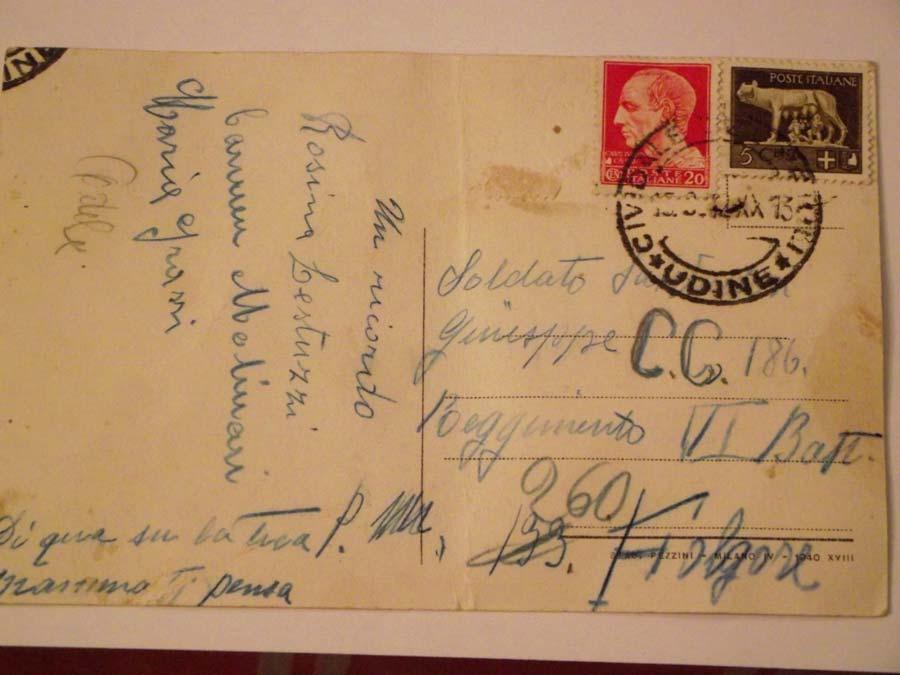 Un ricordo
Rosina Lestuzzi
Carmen Molinari
Maria Grassi
Adele
Di qua su la tua
ti pensa
POSTE ITALIANE
5
POSTE
ITALIANE 20
CIVIDALE
XX 13
★ UDINE ★
Soldato
Giuseppe C.C. 186.
Reggimento VI Batt.
260
133 Folgore
PEZZINI - MILANO IV - 1940 XVIII